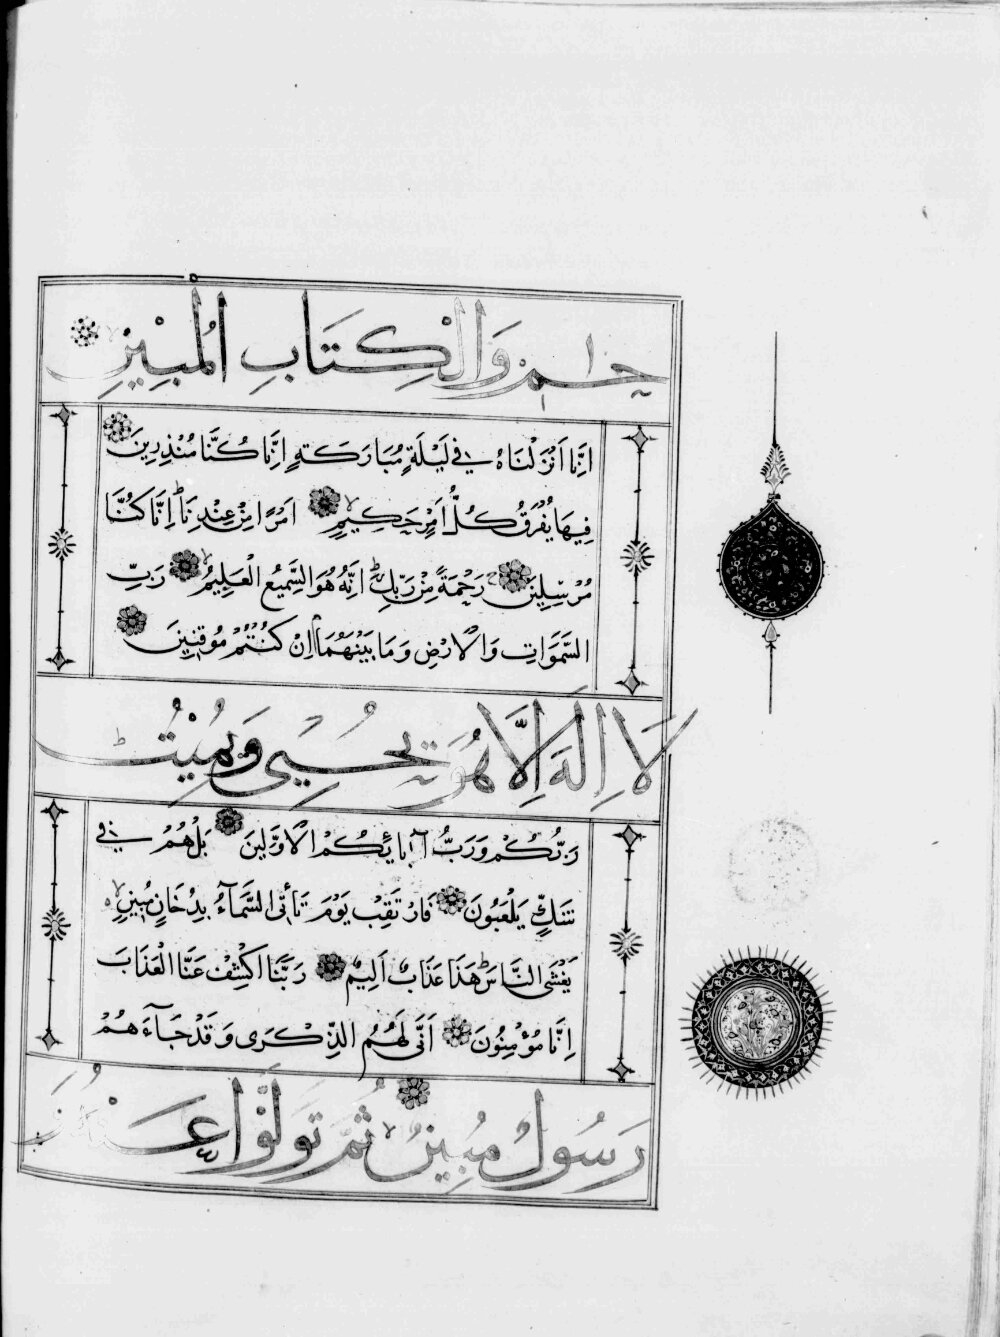 حم وَالْكِتَابِ الْمُبِينِ
اِنَّا اَنْزَلْنَاهُ فِي لَيْلَةٍ مُبَارَكَةٍ اِنَّا كُنَّا مُنْذِرِينَ
فِيهَا يُفْرَقُ كُلُّ اَمْرٍ حَكِيمٍ اَمْرًا مِنْ عِنْدِنَا اِنَّا كُنَّا
مُرْسِلِينَ رَحْمَةً مِنْ رَبِّكَ اِنَّهُ هُوَ السَّمِيعُ الْعَلِيمُ رَبِّ
السَّمَوَاتِ وَالْاَرْضِ وَمَا بَيْنَهُمَا اِنْ كُنْتُمْ مُوقِنِينَ
لَا اِلَهَ اِلَّا هُوَ يُحْيِي وَيُمِيتُ
رَبُّكُمْ وَرَبُّ آبَائِكُمُ الْاَوَّلِينَ بَلْ هُمْ فِي
شَكٍّ يَلْعَبُونَ فَارْتَقِبْ يَوْمَ تَأْتِي السَّمَآءُ بِدُخَانٍ مُبِينٍ
يَغْشَى النَّاسَ هَذَا عَذَابٌ اَلِيمٌ رَبَّنَا اكْشِفْ عَنَّا الْعَذَابَ
اِنَّا مُؤْمِنُونَ اَنَّى لَهُمُ الذِّكْرَى وَقَدْ جَآءَهُمْ
رَسُولٌ مُبِينٌ ثُمَّ تَوَلَّوْا عَنْهُ